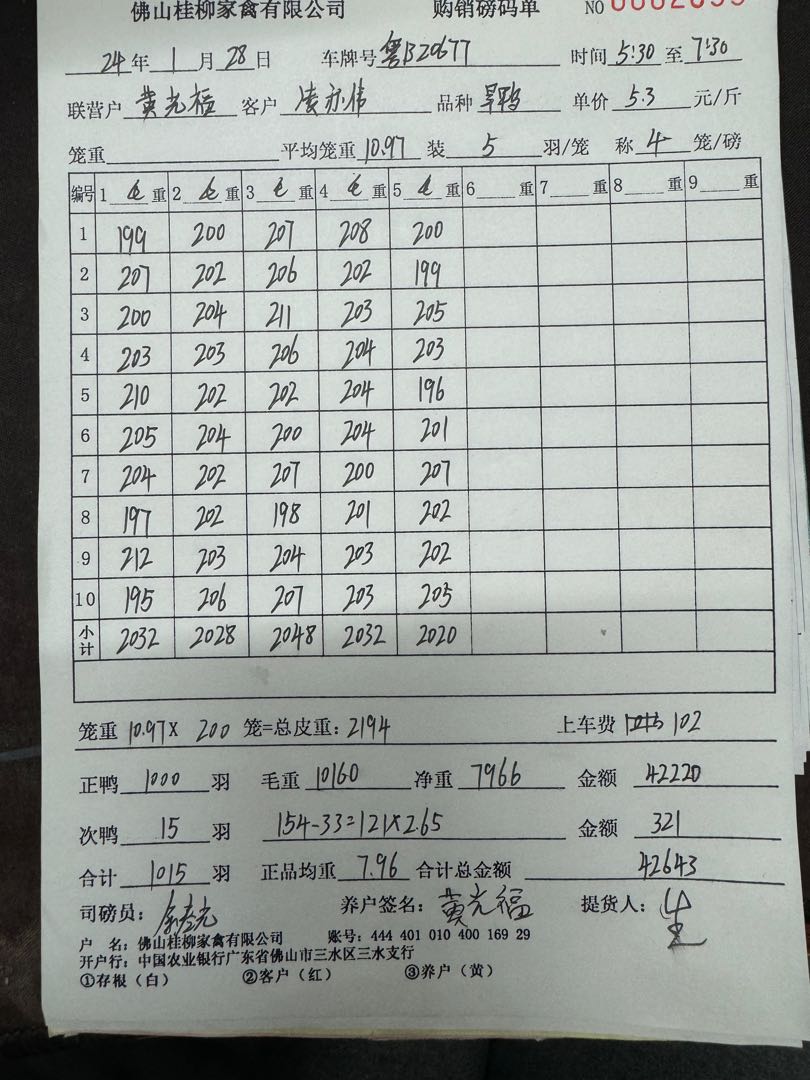 佛山桂柳家禽有限公司 购销磅码单 NO
24年1月28日 车牌号粤BZ0677 时间5:30至7:30
联营户黄光福 客户凌亦伟 品种旱鸭 单价5.3元/斤
笼重 平均笼重10.97 装5羽/笼 称4笼/磅
编号 1毛重 2毛重 3毛重 4毛重 5毛重 6重 7重 8重 9重
1 199 200 207 208 200
2 207 202 206 202 199
3 200 204 211 203 205
4 203 203 206 204 203
5 210 202 202 204 196
6 205 204 200 204 201
7 204 202 207 200 207
8 197 202 198 201 202
9 212 203 204 203 202
10 195 206 207 203 205
小计 2032 2028 2048 2032 2020
笼重10.97×200笼=总皮重:2194 上车费 102
正鸭1000羽 毛重10160 净重7966 金额42220
次鸭15羽 154-33=121×2.65 金额321
合计1015羽 正品均重7.96 合计总金额42643
司磅员: 养户签名:黄光福 提货人:
户 名:佛山桂柳家禽有限公司 账号:444 401 010 400 169 29
开户行:中国农业银行广东省佛山市三水区三水支行
①存根(白) ②客户(红) ③养户(黄)